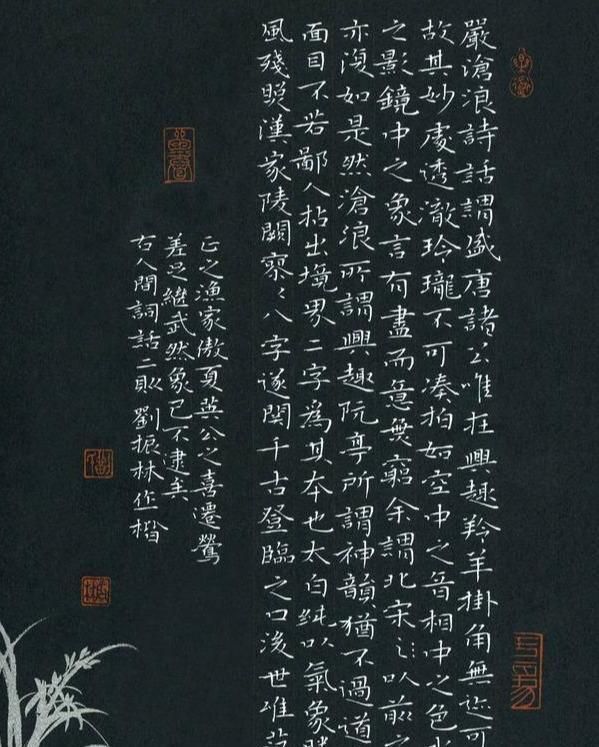 嚴滄浪詩話謂盛唐諸公唯在興趣羚羊掛角無迹可
故其妙處透澈玲瓏不可湊拍如空中之音相中之色水
之影鏡中之象言有盡而意無窮余謂北宋以前之
亦復如是然滄浪所謂興趣阮亭所謂神韻猶不過道
面目不若鄙人拈出境界二字為其本也太白純以氣象勝
風殘照漢家陵闕寥〻八字遂關千古登臨之口後世唯范
正之漁家傲夏英公之喜遷鶯
差足繼武然象已不逮矣
右人間詞話二則劉振林作楷